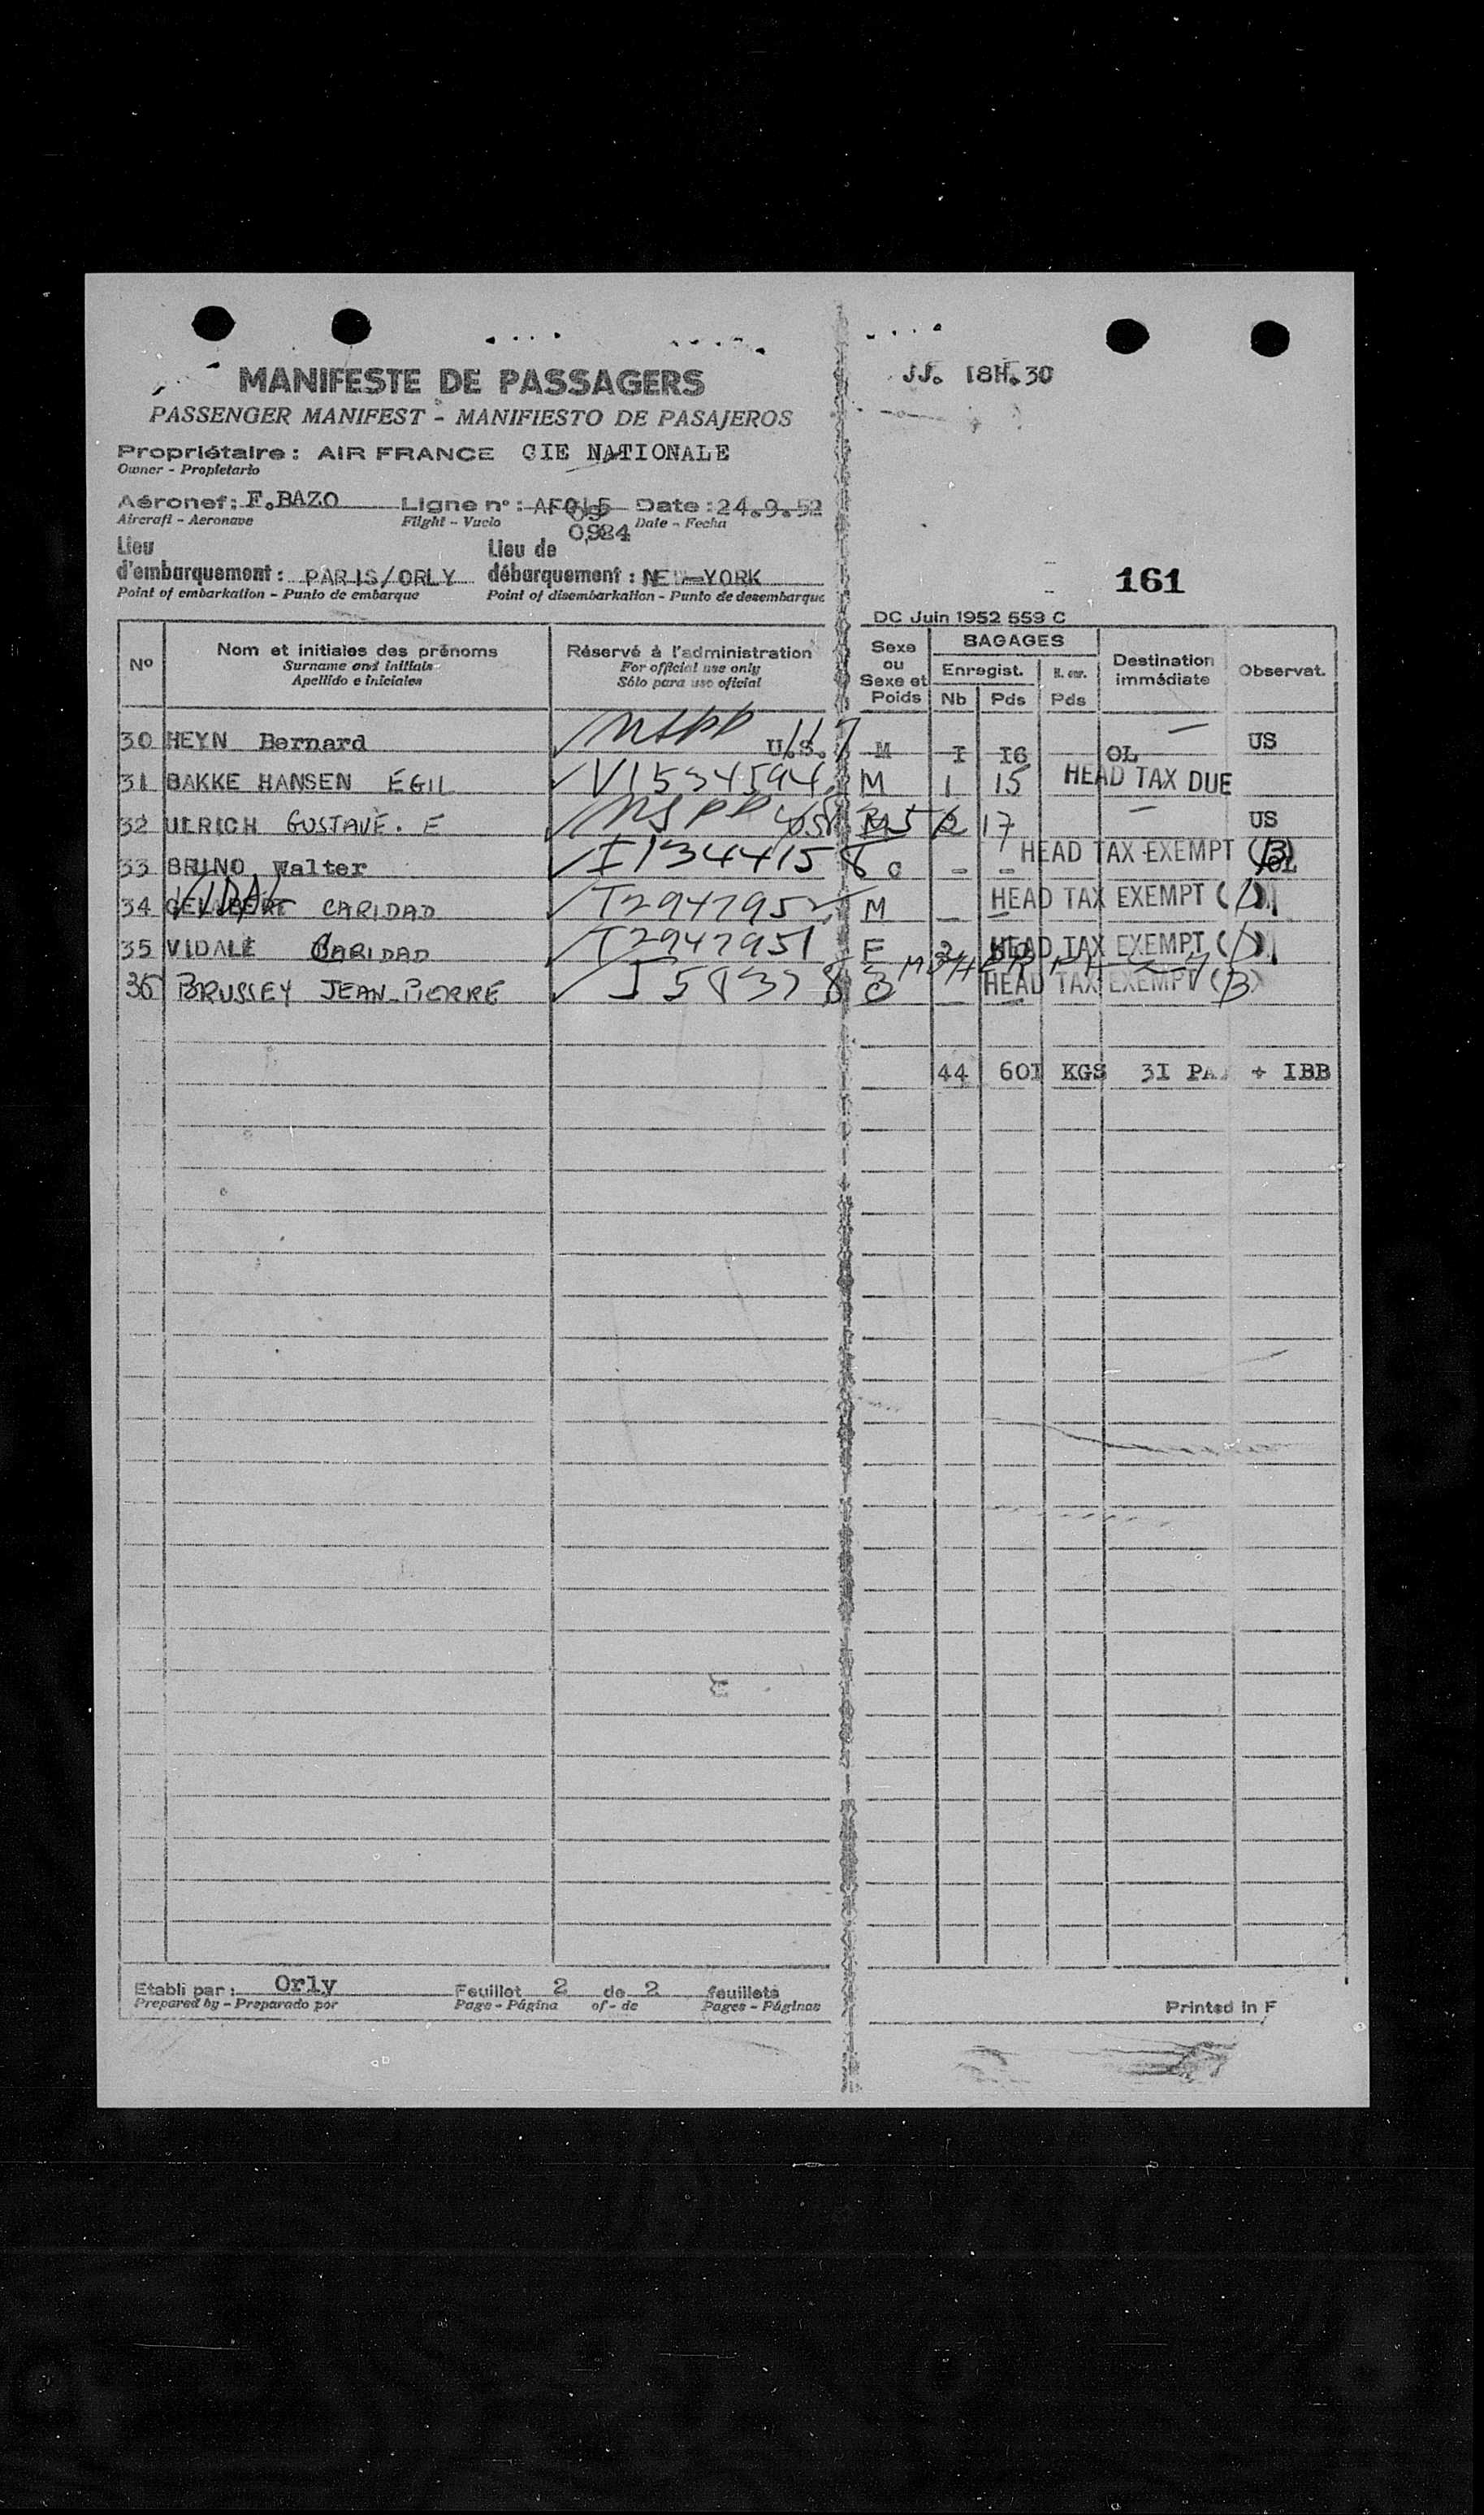 MANIFESTE DE PASSAGERS
JJ. I8H.30
PASSENGER MANIFEST - MANIFIESTO DE PASAJEROS
Propriétaire : AIR FRANCE CIE NATIONALE
Owner - Propietario
Aéronef: F.BAZO Ligne n° : Date : 24.9.52
Aircraft - Aeronave Flight - Vuelo Date - Fecha
Lieu d'embarquement : PARIS/ORLY Lieu de débarquement : NEW-YORK
Point of embarkation - Punto de embarque Point of disembarkation - Punto de desembarque
161
DC Juin 1952 559 C
N° Nom et initiales des prénoms Réservé à l'administration Sexe ou Sexe et Poids BAGAGES Destination immédiate Observat.
Surname and initials For official use only Enregist.
Apellido e iniciales Sólo para uso oficial Nb Pds Pds
30 HEYN Bernard U.S. M I I6 OL US
31 BAKKE HANSEN EGIL V1534594 M 1 15 HEAD TAX DUE
32 ULRICH GUSTAVE. E 17 US
33 BRUNO Walter I1344158 C - - HEAD TAX EXEMPT (B)
34 VIDAL CARIDAD T2947952 M - - HEAD TAX EXEMPT
35 VIDALE CARIDAD T2947951 F HEAD TAX EXEMPT
36 BRUSSEY JEAN-PIERRE HEAD TAX EXEMPT (B)
44 60I KGS 3I PAX + IBB
Etabli par : Orly Feuillet 2 de 2 feuillets
Prepared by - Preparado por Page - Página of - de Pages - Páginas
Printed in F